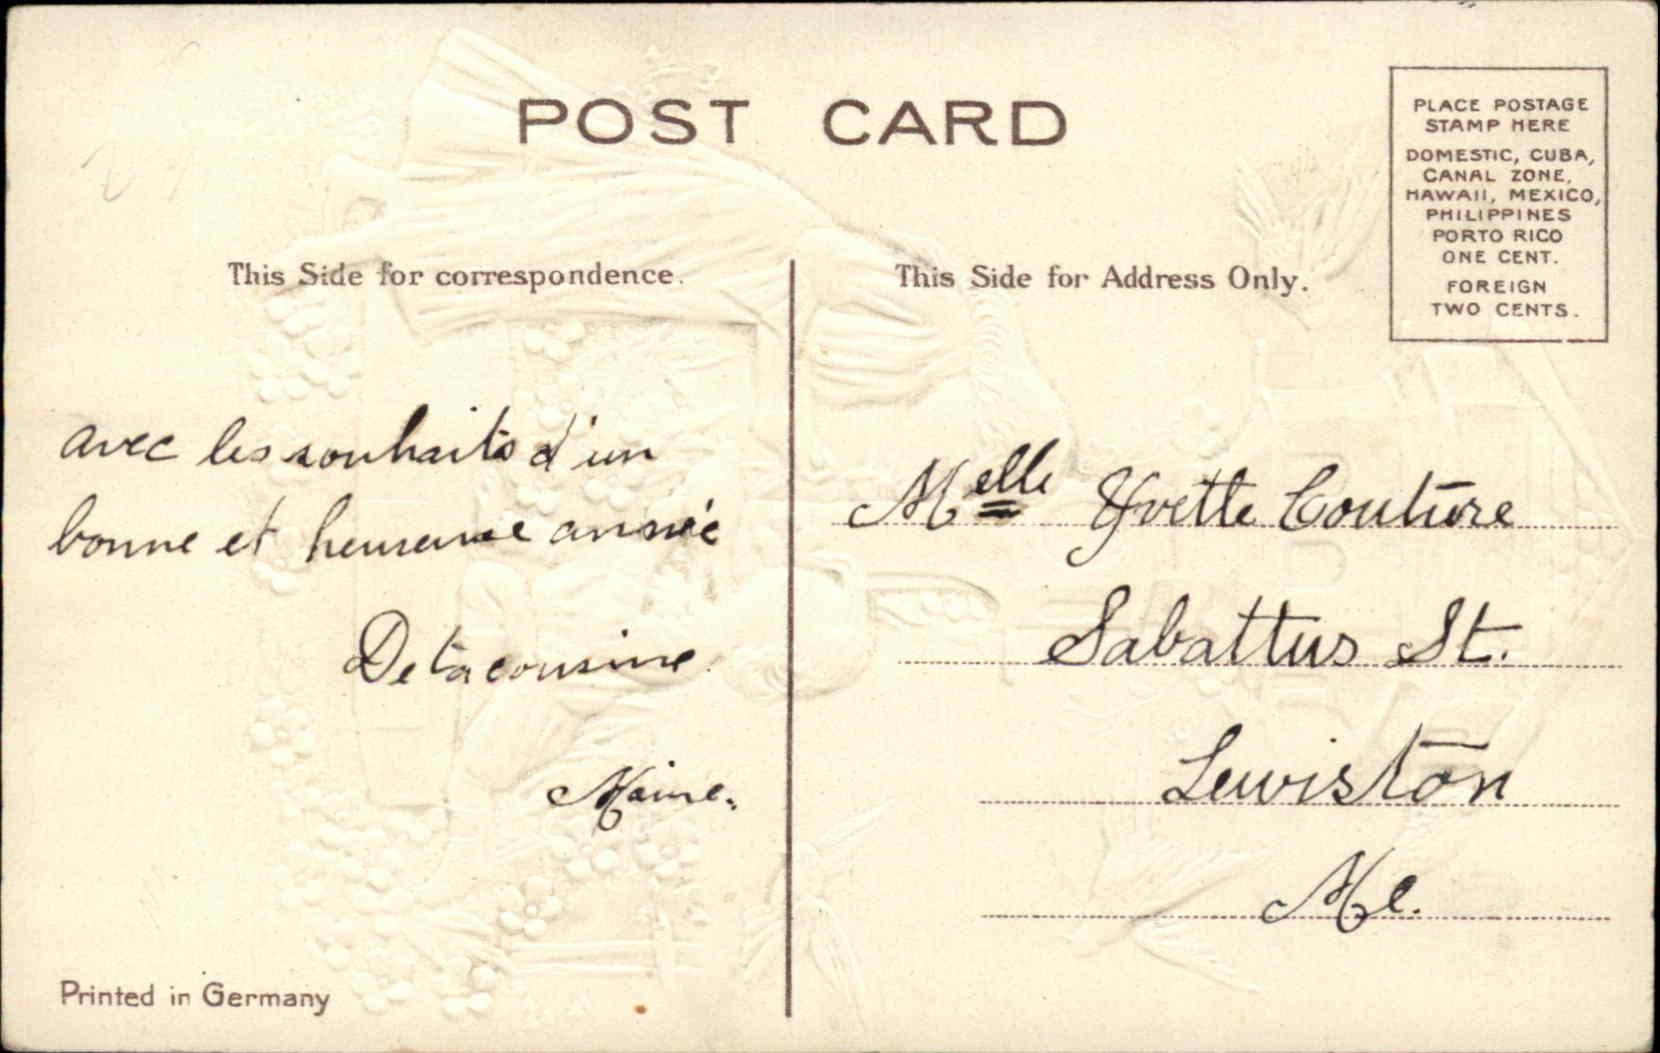 POST CARD
PLACE POSTAGE
STAMP HERE
DOMESTIC, CUBA,
CANAL ZONE,
HAWAII, MEXICO,
PHILIPPINES
PORTO RICO
ONE CENT.
FOREIGN
TWO CENTS.
This Side for correspondence.
This Side for Address Only.
avec les souhaits d'un
bonne et heureuse année
De ta cousine
Maine.
Melle Yvette Couture
Sabattus St.
Lewiston
Me.
Printed in Germany